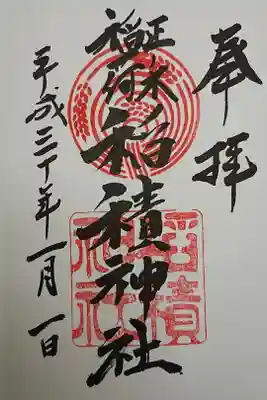 奉拝
正ノ木
稲荷
稲積神社
平成三十年一月一日
稲積
神社